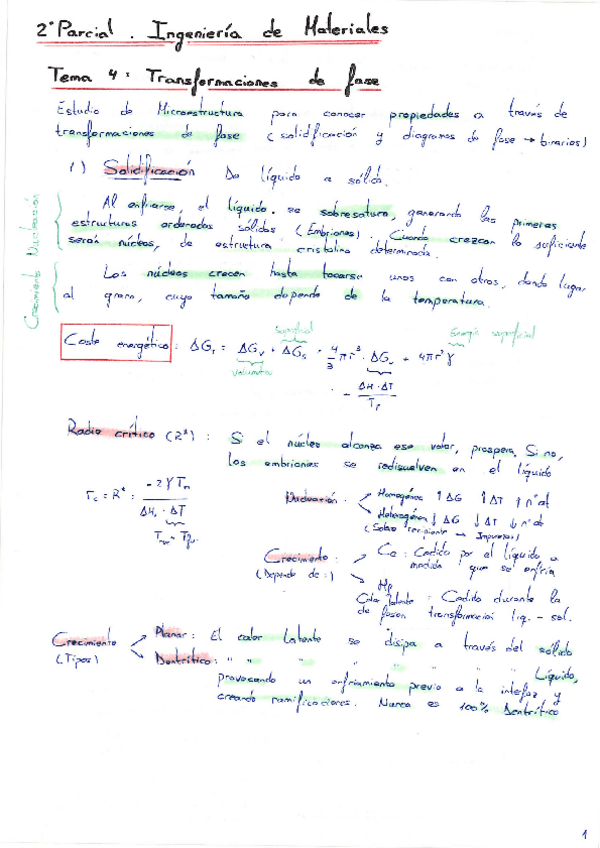 2º Parcial. Ingeniería de Materiales
Tema 4: Transformaciones de fase
Estudio de Microestructura para conocer propiedades a través de
transformaciones de fase (solidificación y diagramas de fase → binarios)
1) Solidificación De líquido a sólido.
Al enfriarse, el líquido se sobresatura, generando las primeras
estructuras ordenadas sólidas (Embriones). Cuando crezcan lo suficiente
serán núcleos, de estructura cristalina determinada.
Los núcleos crecen hasta tocarse unos con otros, dando lugar
al grano, cuyo tamaño depende de la temperatura.
Crecimiento Nucleación
Superficial Energía superficial
Coste energético: ΔG_T = ΔG_v + ΔG_s = 4/3 πr³ · ΔG_v + 4πr² γ
volumétrica
- ΔH · ΔT / T_f
Radio crítico (R*): Si el núcleo alcanza ese valor, prospera. Si no,
los embriones se redisuelven en el líquido
r_c = R* = -2γ T_m / ΔH_v · ΔT
Nucleación: → Homogénea ↑ΔG ↑ΔT ↑nºat
→ Heterogénea ↓ΔG ↓ΔT ↓nºat
(Sobre recipiente → Impurezas)
Crecimiento: → Ce: Cedido por el líquido a
(Depende de:) medida que se enfría
→ Hf
Calor latente : Cedido durante la
de fusión transformación liq. - sol.
Crecimiento → Planar: El calor latente se disipa a través del sólido
(Tipos) → Dentrítico: " " " " " " " Líquido,
provocando un enfriamiento previo a la interfaz y
creando ramificaciones. Nunca es 100% Dentrítico
1